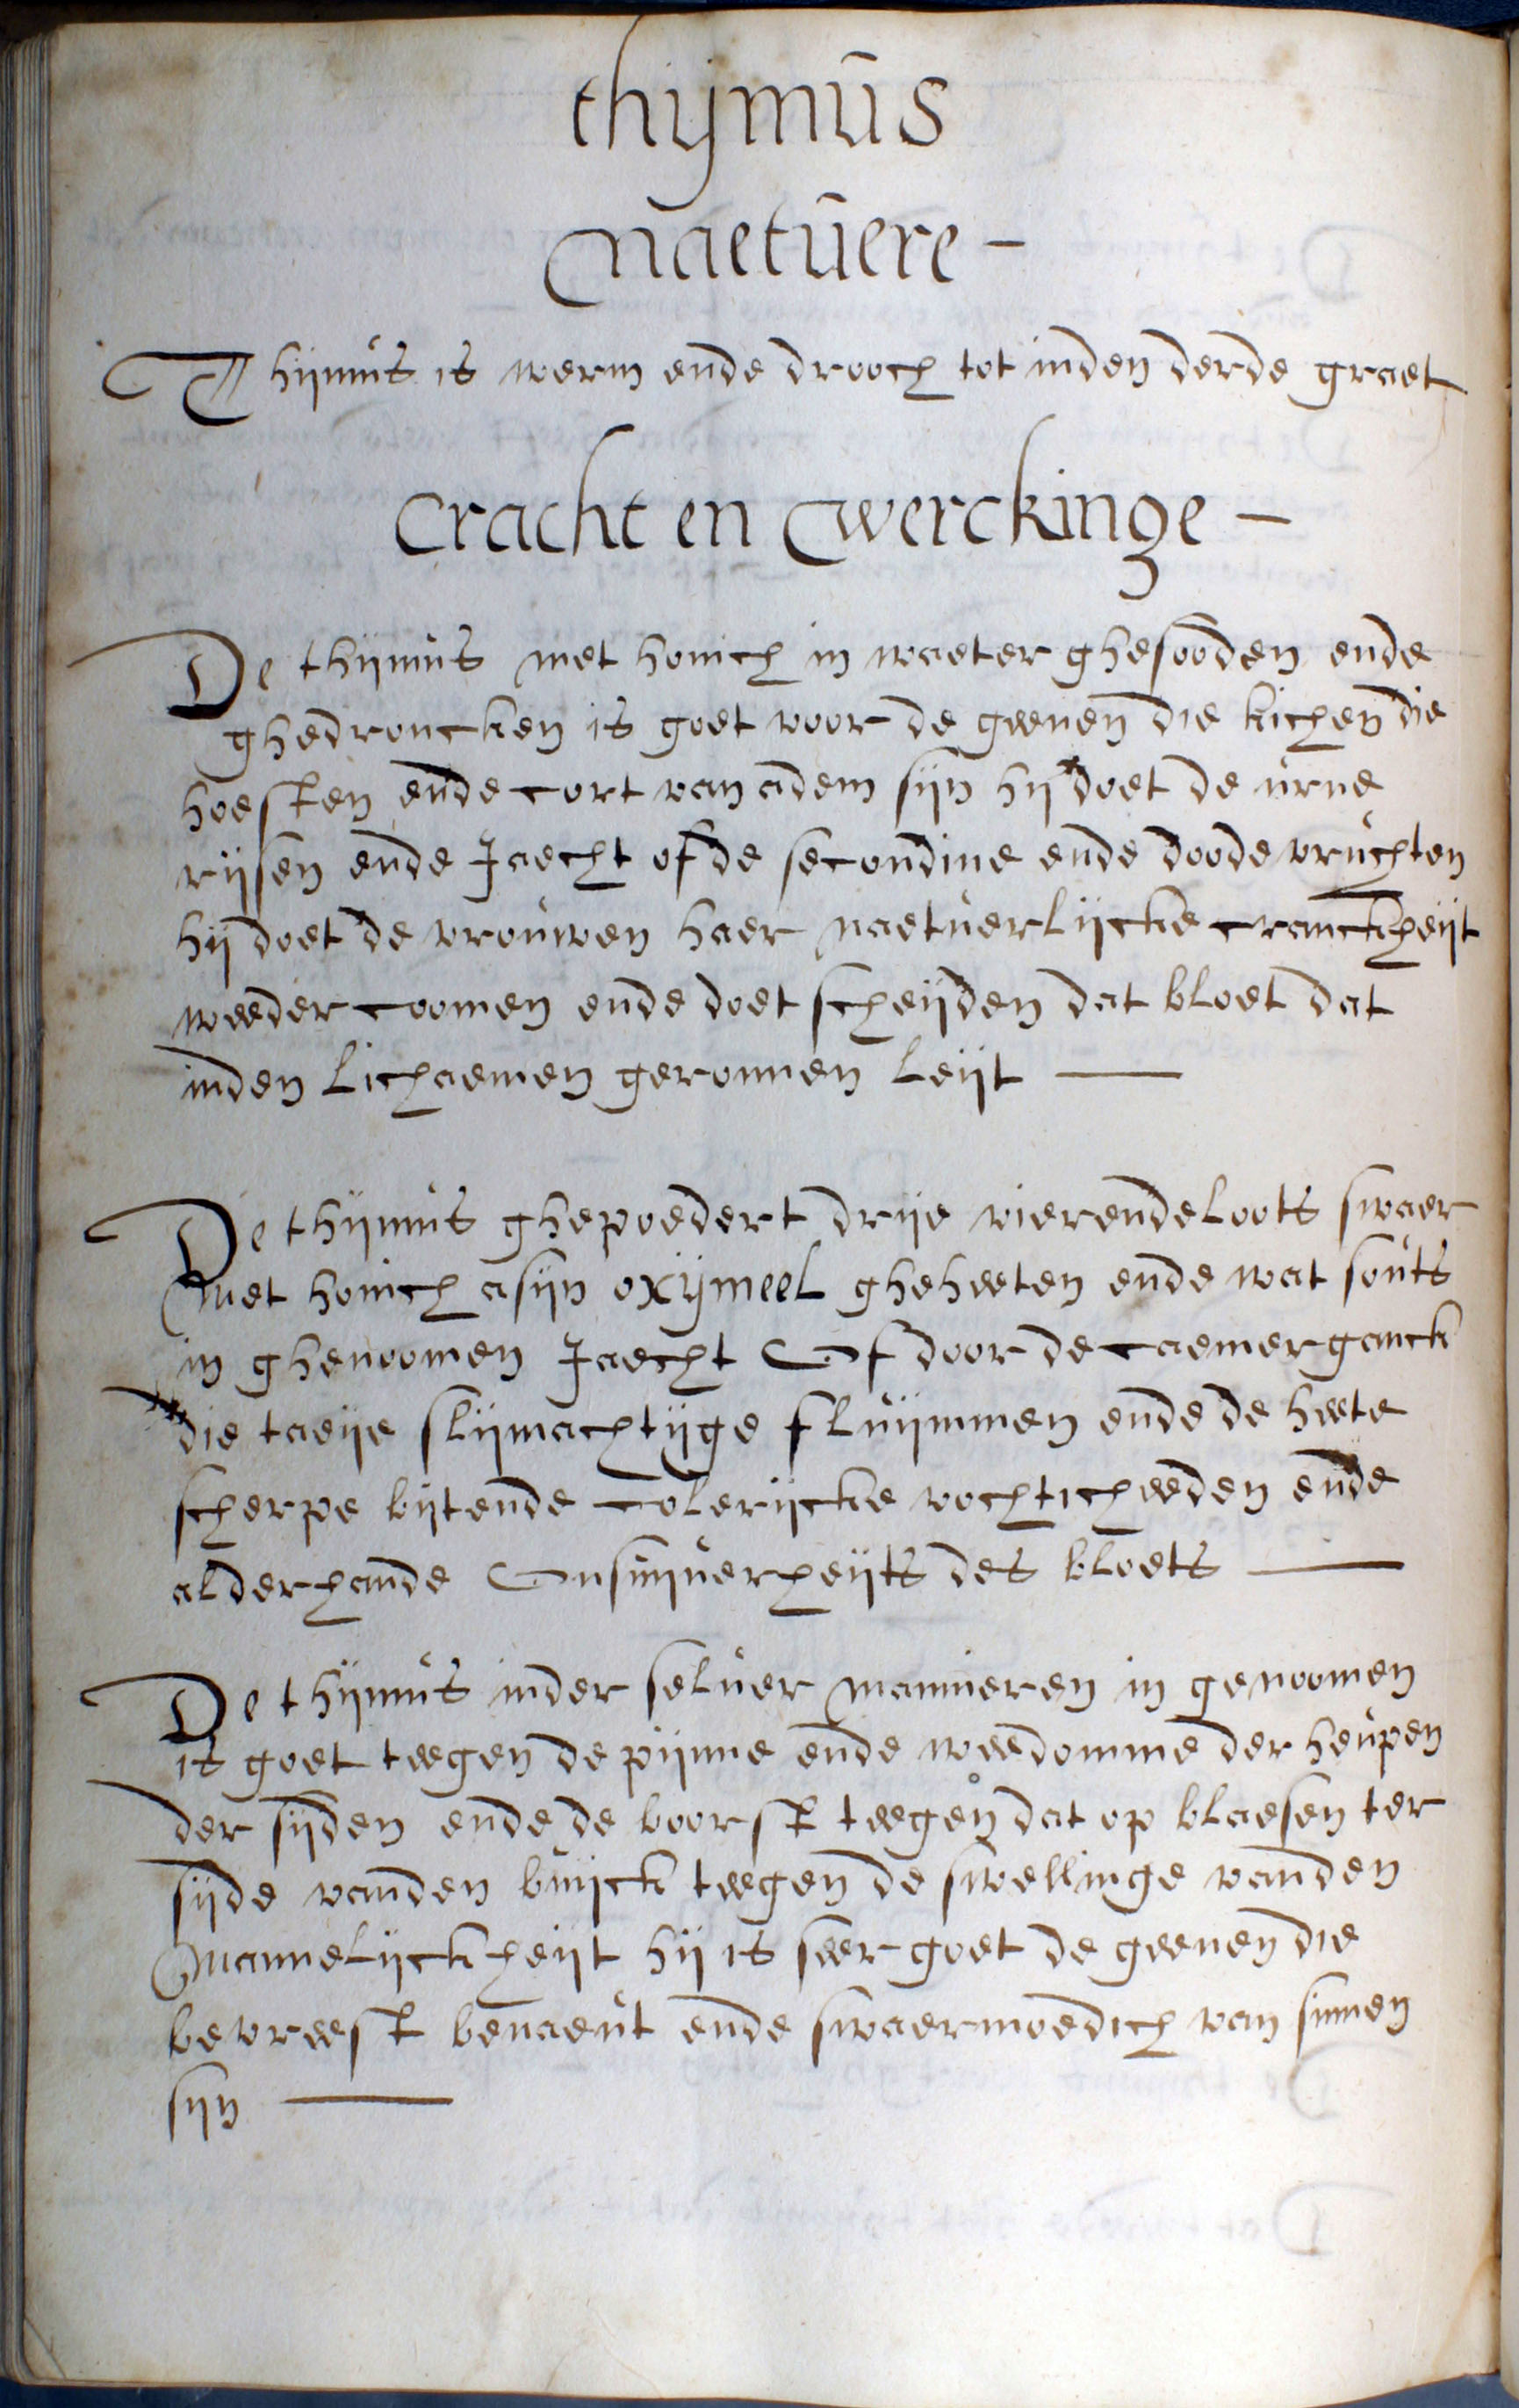 thijmus
naetuere -
Thijmus is werm ende drooch tot inden derde graet
cracht en werckinge -
De thijmus met honich in waeter ghesooden ende
ghedroncken is goet voor de geenen die kichen die
hoesten ende cort van adem sijn hij doet de urne
rijsen ende Jaecht of de secondine ende doode vruchten
hij doet de vrouwen haer naetuerlijcke cranckheijt
weeder coomen ende doet scheijden dat bloet dat
inden lichaemen geronnen leijt
De thijmus ghepoedert drije vierendeloots swaer
Met honich asijn oxijmeel gheheeten ende wat souts
in ghenoomen Jaecht Of door de caemerganck
die taeije slijmachtijge fluijmmen ende de heete
scherpe bijtende Colerijcke vochticheeden ende
alderhande Onsuijverheijts des bloets
De thijmus inder selver mannieren in genoomen
is goet teegen de pijnne ende weedomme der heupen
der sijden ende de boorst teegen dat op blaesen ter
sijde vanden buijck teegen de swellinge vanden
Mannelijckheijt hij is seer goet de geenen die
bevreest benaeut ende swaermoedich van sinnen
sijn